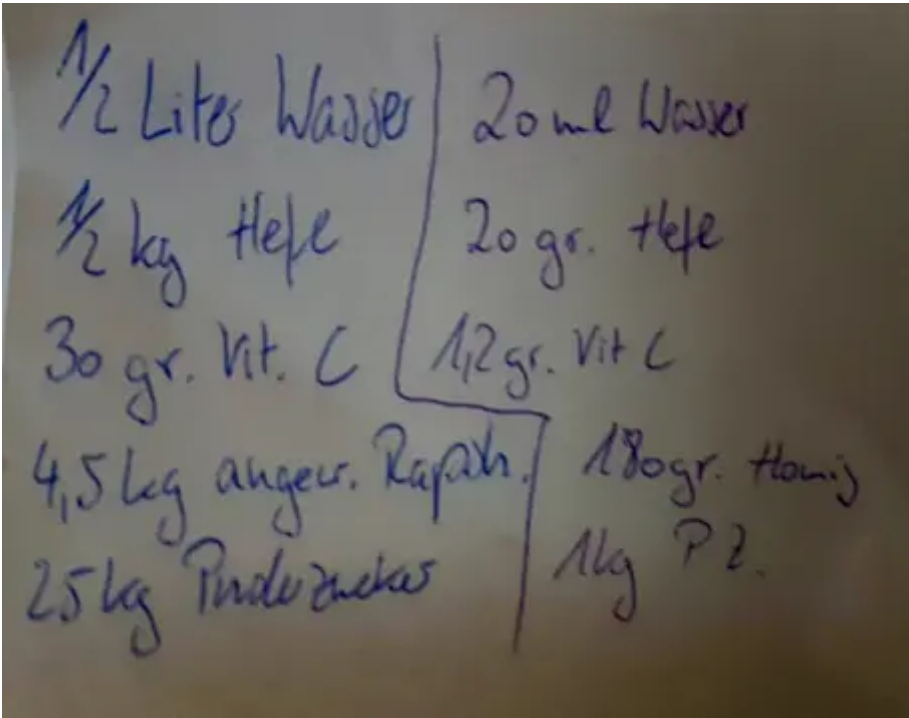 1/2 Liter Wasser
1/2 kg Hefe
30 gr. Vit. C
4,5 kg angew. Rapsh.
25 kg Puderzucker
20 ml Wasser
20 gr. Hefe
1,2 gr. Vit C
180 gr. Honig
1kg P Z.